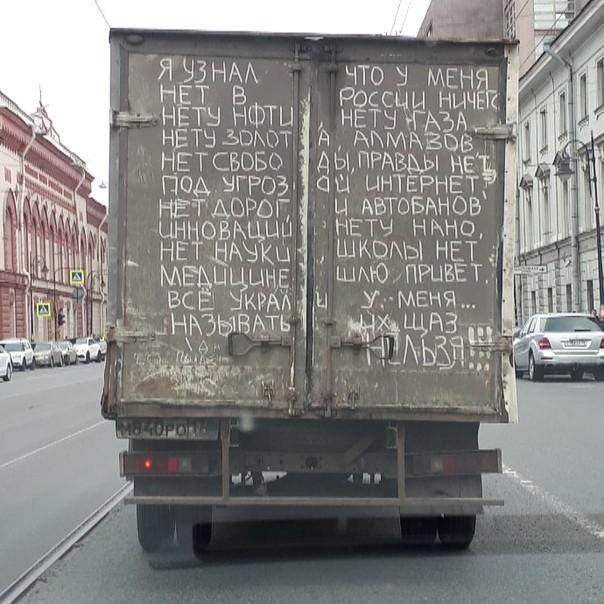 Я УЗНАЛ ЧТО У МЕНЯ
НЕТ В РОССИИ НИЧЕГ
НЕТУ НФТИ НЕТУ ГАЗА
НЕТУ ЗОЛОТА АЛМАЗОВ
НЕТ СВОБОДЫ, ПРАВДЫ НЕТ.
ПОД УГРОЗОЙ ИНТЕРНЕТ?
НЕТ ДОРОГ И АВТОБАНОВ
ИННОВАЦИЙ НЕТУ НАНО
НЕТ НАУКИ ШКОЛЫ НЕТ
МЕДИЦИНЕ ШЛЮ ПРИВЕТ.
ВСЁ УКРАЛИ У МЕНЯ...
НАЗЫВАТЬ ИХ ЩАЗ
ЛЬЗЯ!!!
М840РО